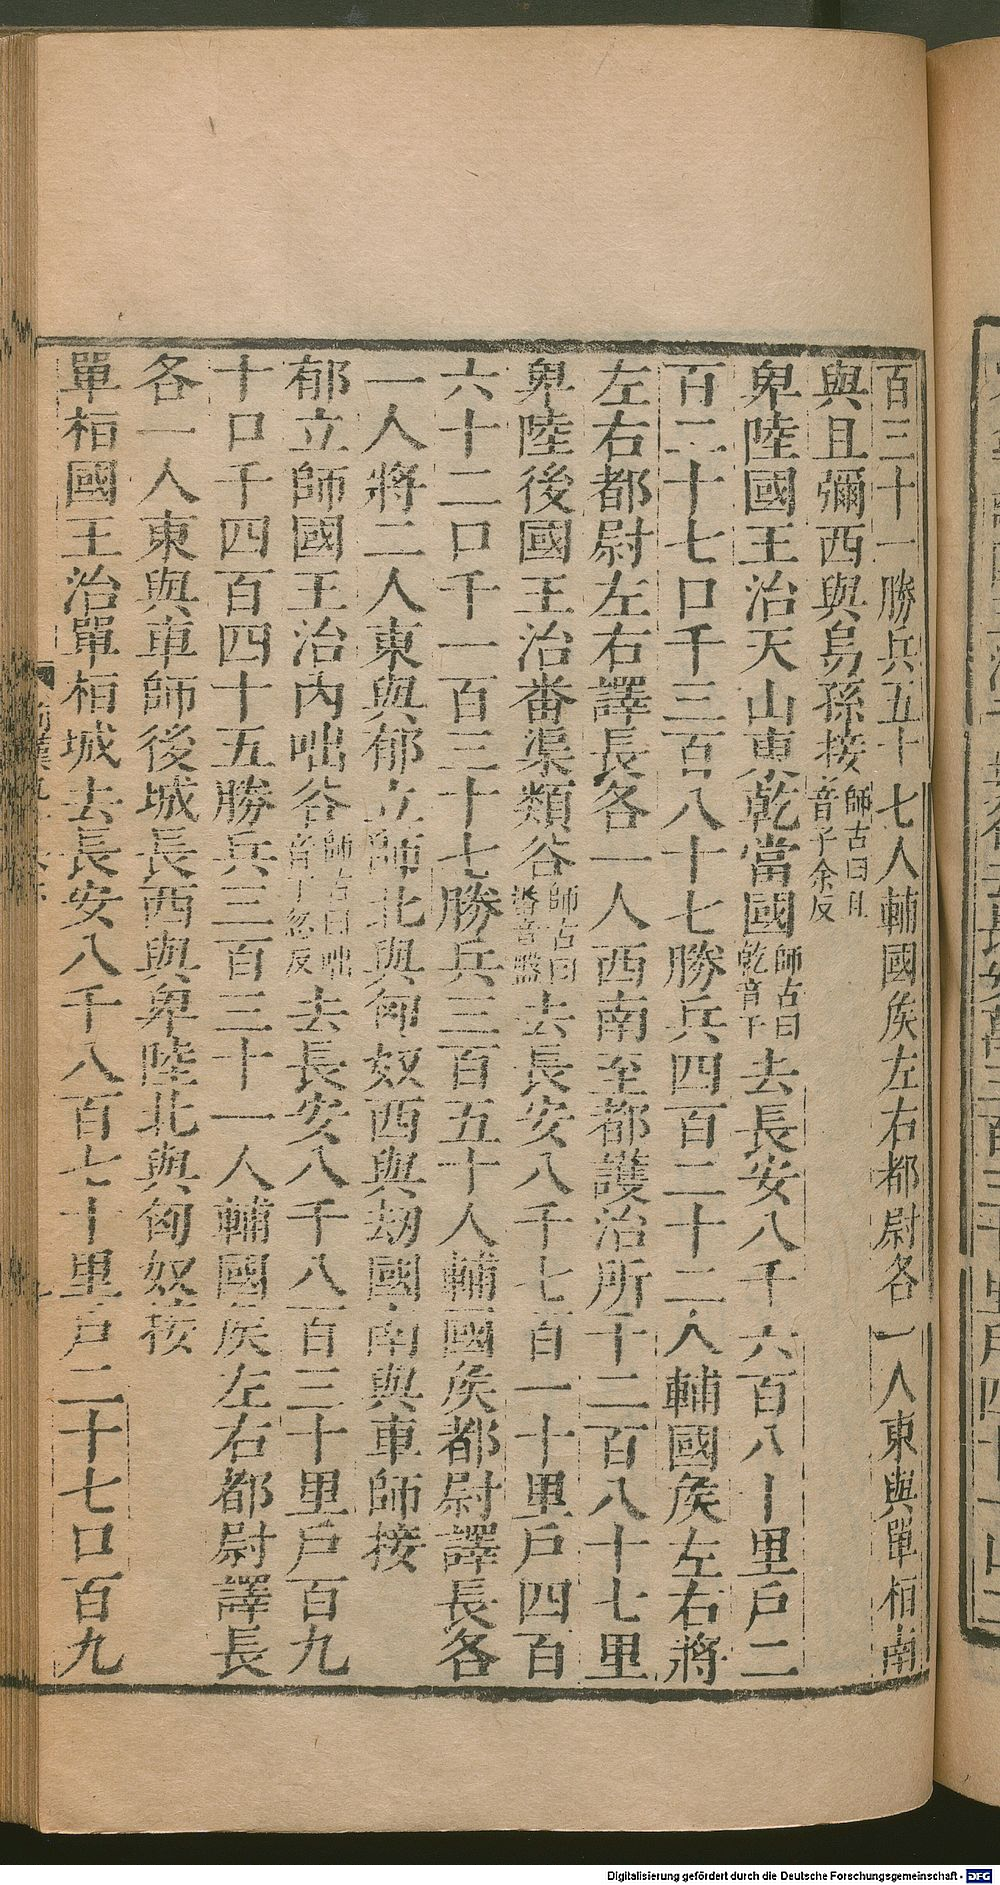 百三十一勝兵五十七人輔國侯左右都尉各一人東與單栢南
與且彌西與烏孫接師古曰且音子余反
卑陸國王治天山東乾當國師古曰乾音干去長安八千六百八十里戶二
百二十七口千三百八十七勝兵四百二十二人輔國侯左右將
左右都尉左右譯長各一人西南至都護治所千二百八十七里
卑陸後國王治番渠類谷師古曰番音盤去長安八千七百一十里戶四百
六十二口千一百三十七勝兵三百五十人輔國侯都尉譯長各
一人將二人東與郁立師北與匈奴西與劫國南與車師接
郁立師國王治內咄谷師古曰咄音丁忽反去長安八千八百三十里戶百九
十口千四百四十五勝兵三百三十一人輔國侯左右都尉譯長
各一人東與車師後城長西與卑陸北與匈奴接
單栢國王治單栢城去長安八千八百七十里戶二十七口百九
Digitalisierung gefördert durch die Deutsche Forschungsgemeinschaft - DFG